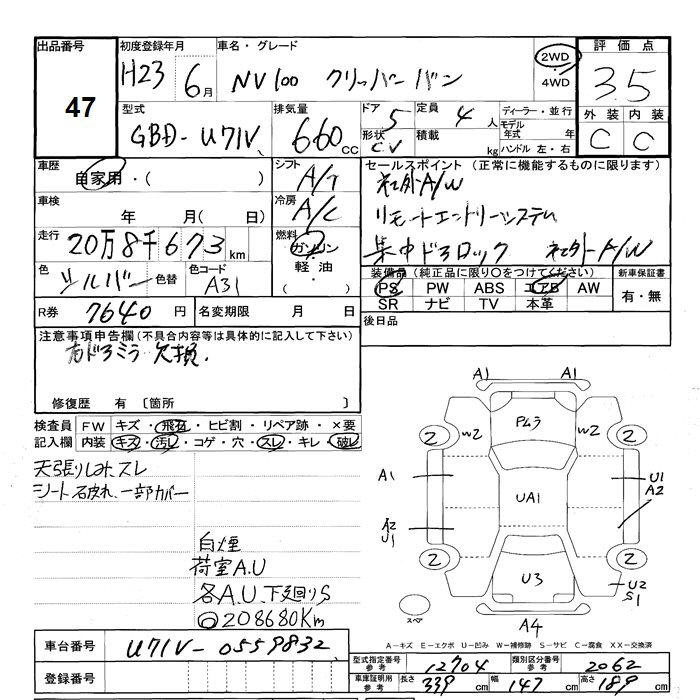 出品番号 初度登録年月 車名・グレード 評価点
47 H23 6月 NV100 クリッパーバン 2WD ・ 4WD 3.5
型式 排気量 ドア 定員 ディーラー・並行 外装 内装
GBD-U71V 660cc 5 4人 モデル年式 年 C C
形状 CV 積載 kg ハンドル 左・右
車歴 自家用・( ) シフト A/T セールスポイント (正常に機能するものに限ります)
社外A/W
車検 年 月(日) 冷房 A/C リモートエンドリーシステム
走行 20万8千673km 燃料 ガソリン・軽油・ 集中ドアロック 社外A/W
色 シルバー 色替 色コード A31 装備品(純正品に限り○をつけてください) 新車保証書
PS PW ABS エアB AW 有・無
SR ナビ TV 本革
R券 7640円 名変期限 月 日 後日品
注意事項申告欄(不具合内容等は具体的に記入して下さい)
右ドアミラ 欠損.
修復歴 有〔箇所 〕
検査員記入欄 FW キズ・飛石・ヒビ割・リペア跡・×要
内装 キズ・汚レ・コゲ・穴・スレ・キレ・破レ
天張りしみ、スレ
シート破れ、一部カバー
白煙
荷室A.U
各A.U、下廻りS
◎208680Km
A1 A1
2 W2 Pムラ W2 2
A1 UA1 U1 A2
A2 U1
2 U3 2 U2 S1
スペア A4
A-キズ E-エクボ U-凹み W-補修跡 S-サビ C-腐食 XX-交換済
車台番号 U71V-0559832
登録番号
型式指定番号 参考 12704 類別区分番号 参考 2062
車庫証明用 参考 長さ 339cm 幅 147cm 高さ 189cm